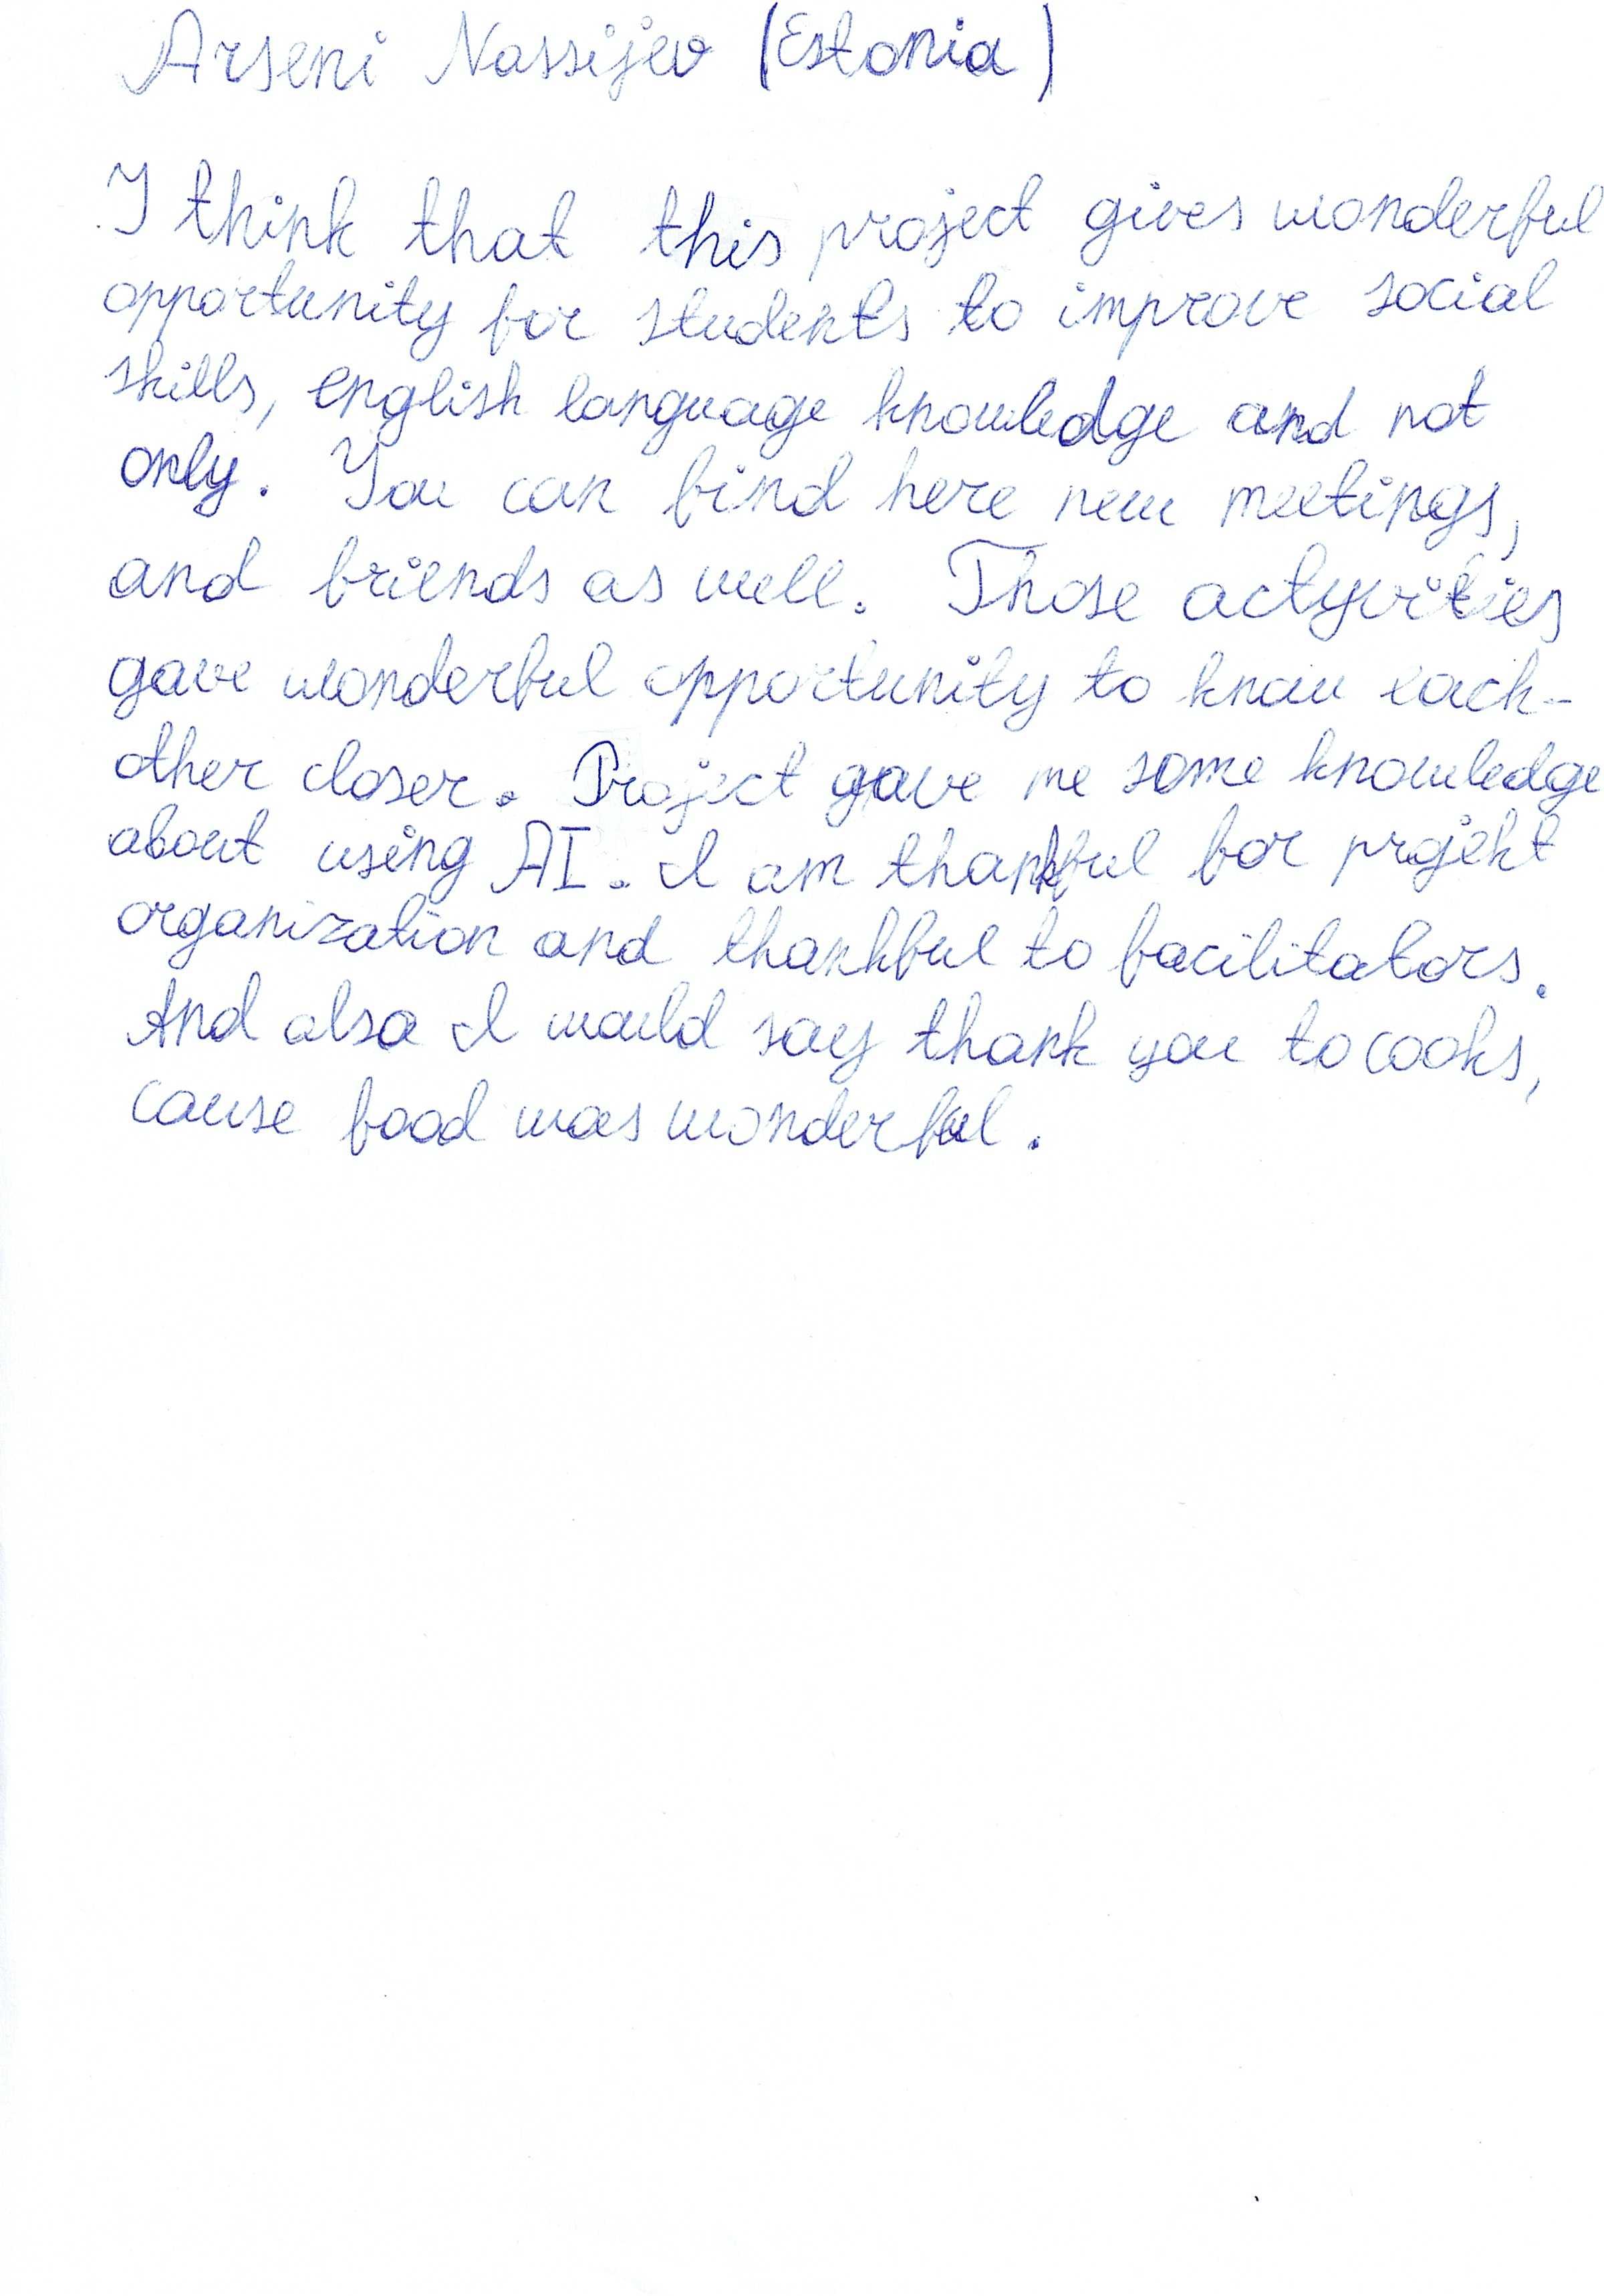 Arseni Nassijev (Estonia)
I think that this project gives wonderful
opportunity for students to improve social
skills, english language knowledge and not
only. You can find here new meetings,
and friends as well. Those actyvities
gave wonderful opportunity to know each-
other closer. Project gave me some knowledge
about using AI. I am thankful for projekt
organization and thankful to facilitators.
And also I would say thank you to cooks,
cause food was wonderful.